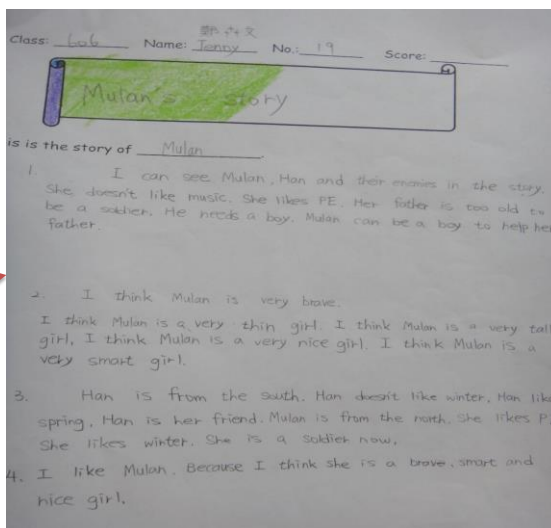 Class: 606 Name: Jenny No.: 19 Score:
Mulan's story
is is the story of Mulan.
1. I can see Mulan, Han and their enemies in the story.
She doesn't like music. She likes PE. Her father is too old to
be a soldier. He needs a boy. Mulan can be a boy to help her
father.
2. I think Mulan is very brave.
I think Mulan is a very thin girl. I think Mulan is a very tall
girl, I think Mulan is a very nice girl. I think Mulan is a
very smart girl.
3. Han is from the south. Han doesn't like winter, Han like
spring, Han is her friend. Mulan is from the north. She likes P
She likes winter. She is a soldier now.
4. I like Mulan. Because I think she is a brave, smart and
nice girl.